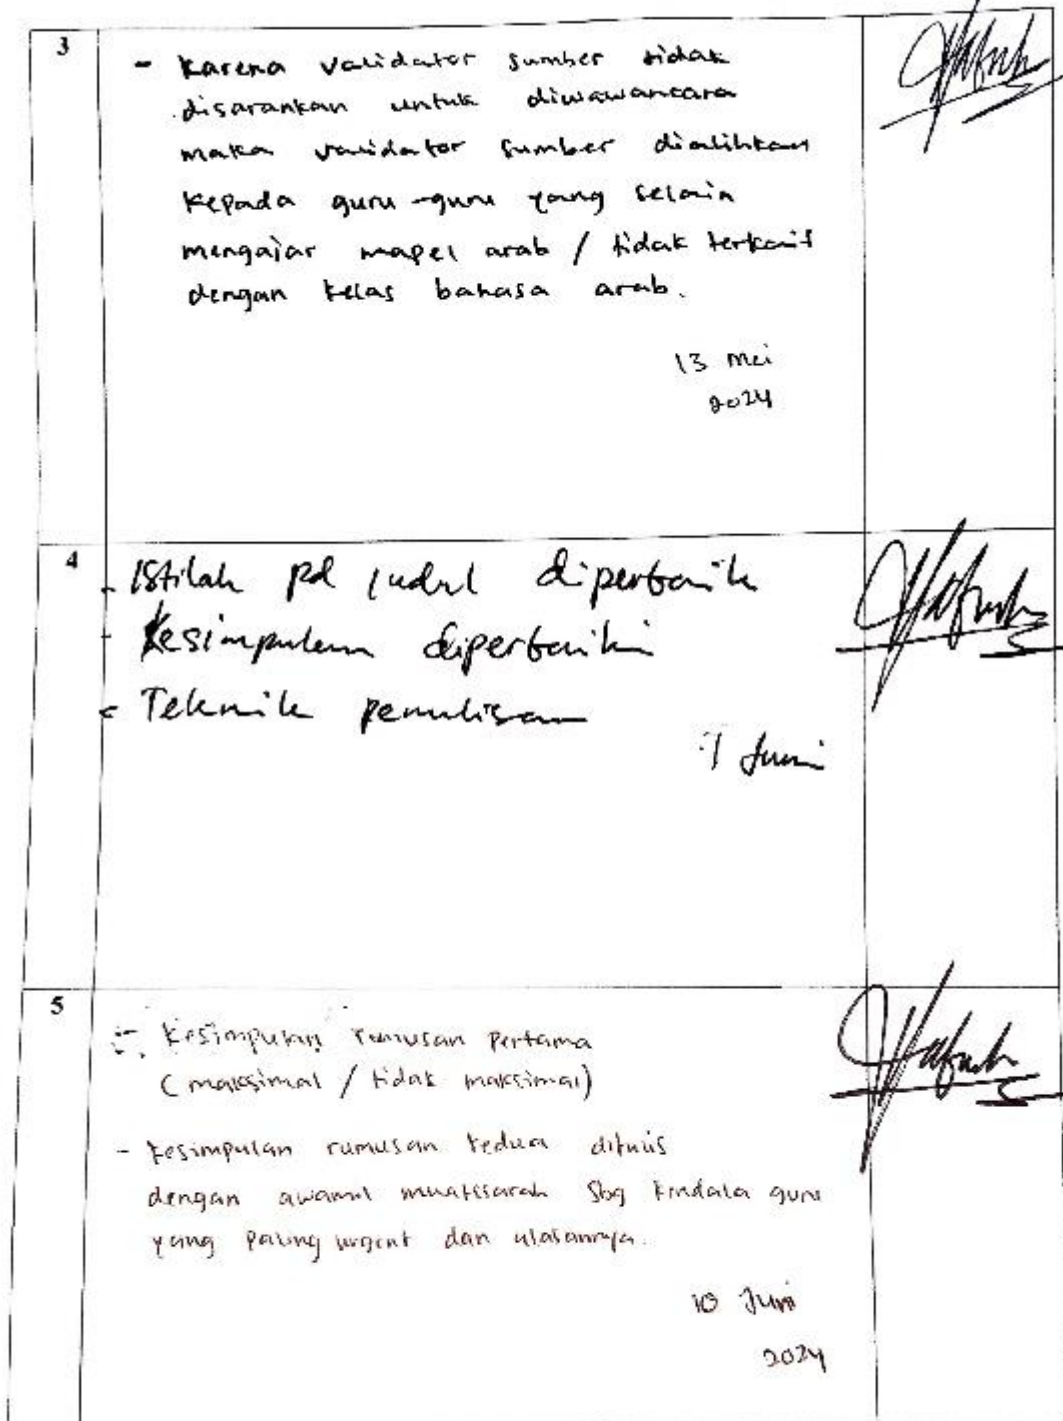 3
- Karena validator sumber tidak
disarankan untuk diwawancara
maka validator sumber dialihkan
kepada guru-guru yang selain
mengajar mapel arab / tidak terkait
dengan kelas bahasa arab.
13 Mei
2024
4
- Istilah pd judul diperbaik
- Kesimpulan diperbaiki
- Teknik penulisan
7 Juni
5
- Kesimpulan rumusan pertama
(maksimal / tidak maksimal)
- Kesimpulan rumusan kedua ditulis
dengan awamil muatssarah sbg kendala guru
yang paling urgent dan ulasannya.
10 Juni
2024